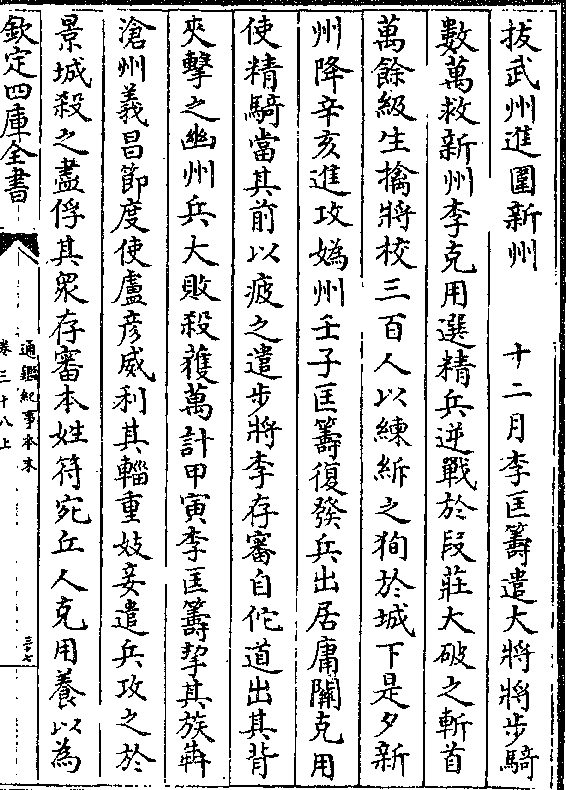 拔武州進圍新州　　十二月李匡籌遣大將將步騎
數萬救新州李克用選精兵逆戰於段莊大破之斬首
萬餘級生擒將校三百人以練紖之狥於城下是夕新
州降辛亥進攻媯州壬子匡籌復發兵出居庸關克用
使精騎當其前以疲之遣步將李存審自佗道出其背
夾擊之幽州兵大敗殺獲萬計甲寅李匡籌挈其族奔
滄州義昌節度使盧彦威利其輜重妓妾遣兵攻之於
景城殺之盡俘其衆存審本姓符宛丘人克用養以為
欽定四庫全書
通鑑紀事本末
卷三十八上
三十七